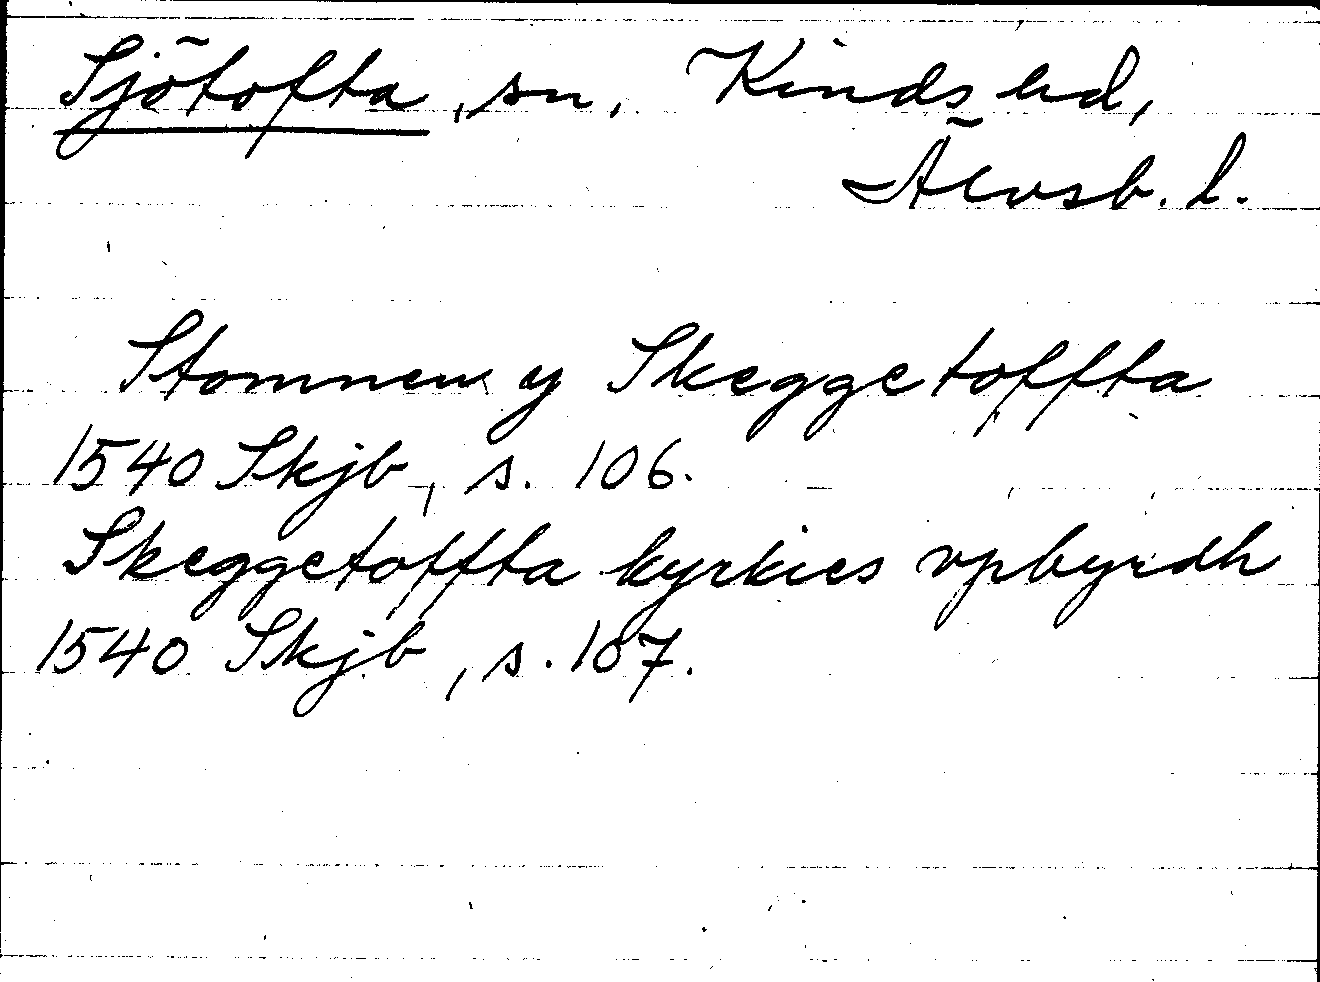 Sjötofta, sn, Kinds hd,
Älvsb. l.
Stomnen y Skeggetoffta
1540 Skjb, s. 106.
Skeggetoffta kyrkies vpbyrdh
1540 Skjb, s. 107.